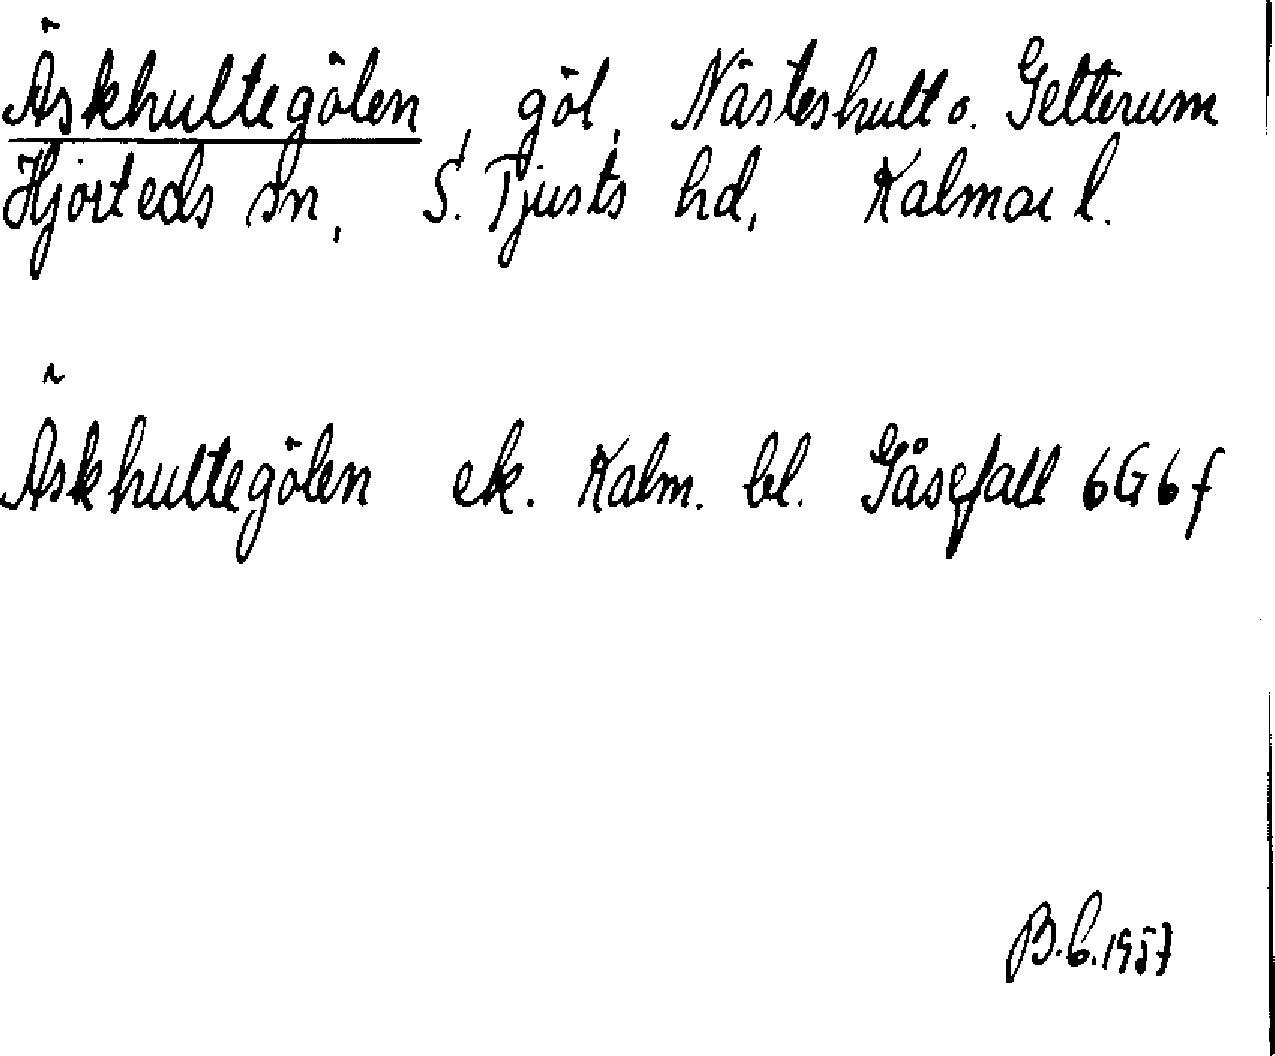 Äskhultegölen, göl, Näste­shult o. Getterum
Hjorteds sn, S. Tjusts hd, Kalmar l.
Äskhultegölen ek. Kalm. bl. Gåsefall 6G6f
B.C. 1957